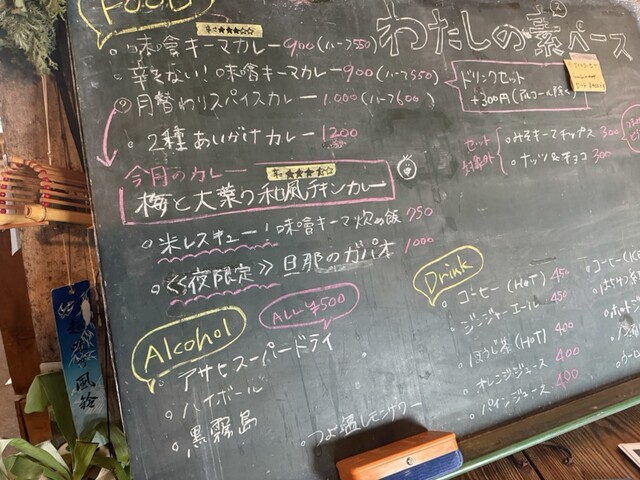 FOOD
わたしの素ベース
辛さ★★★☆☆
味噌キーマカレー 900(ハーフ550)
辛くない!味噌キーマカレー 900(ハーフ550)
月替わりスパイスカレー 1,000(ハーフ600)
2種あいがけカレー 1200
ドリンクセット
+300円(アルコール除く)
セット対象外
みそキーマチップス 300
ナッツ&チョコ 300
今月のカレー
梅と大葉の和風チキンカレー
米レスキュー!味噌キーマ炊め飯 750
≪夜限定≫旦那のガパオ 1000
Alcohol
ALL ¥500
アサヒスーパードライ
ハイボール
黒霧島
つぶ塩レモンサワー
Drink
コーヒー(HOT) 450
ジンジャーエール 450
ほうじ茶(HOT) 400
オレンジジュース 400
パインジュース 400
風鈴